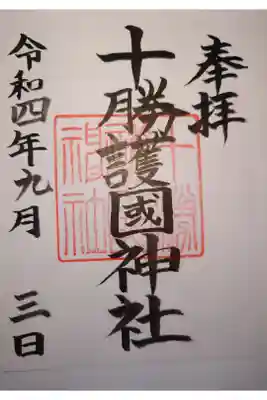 奉拝
十勝護國神社
令和四年九月三日